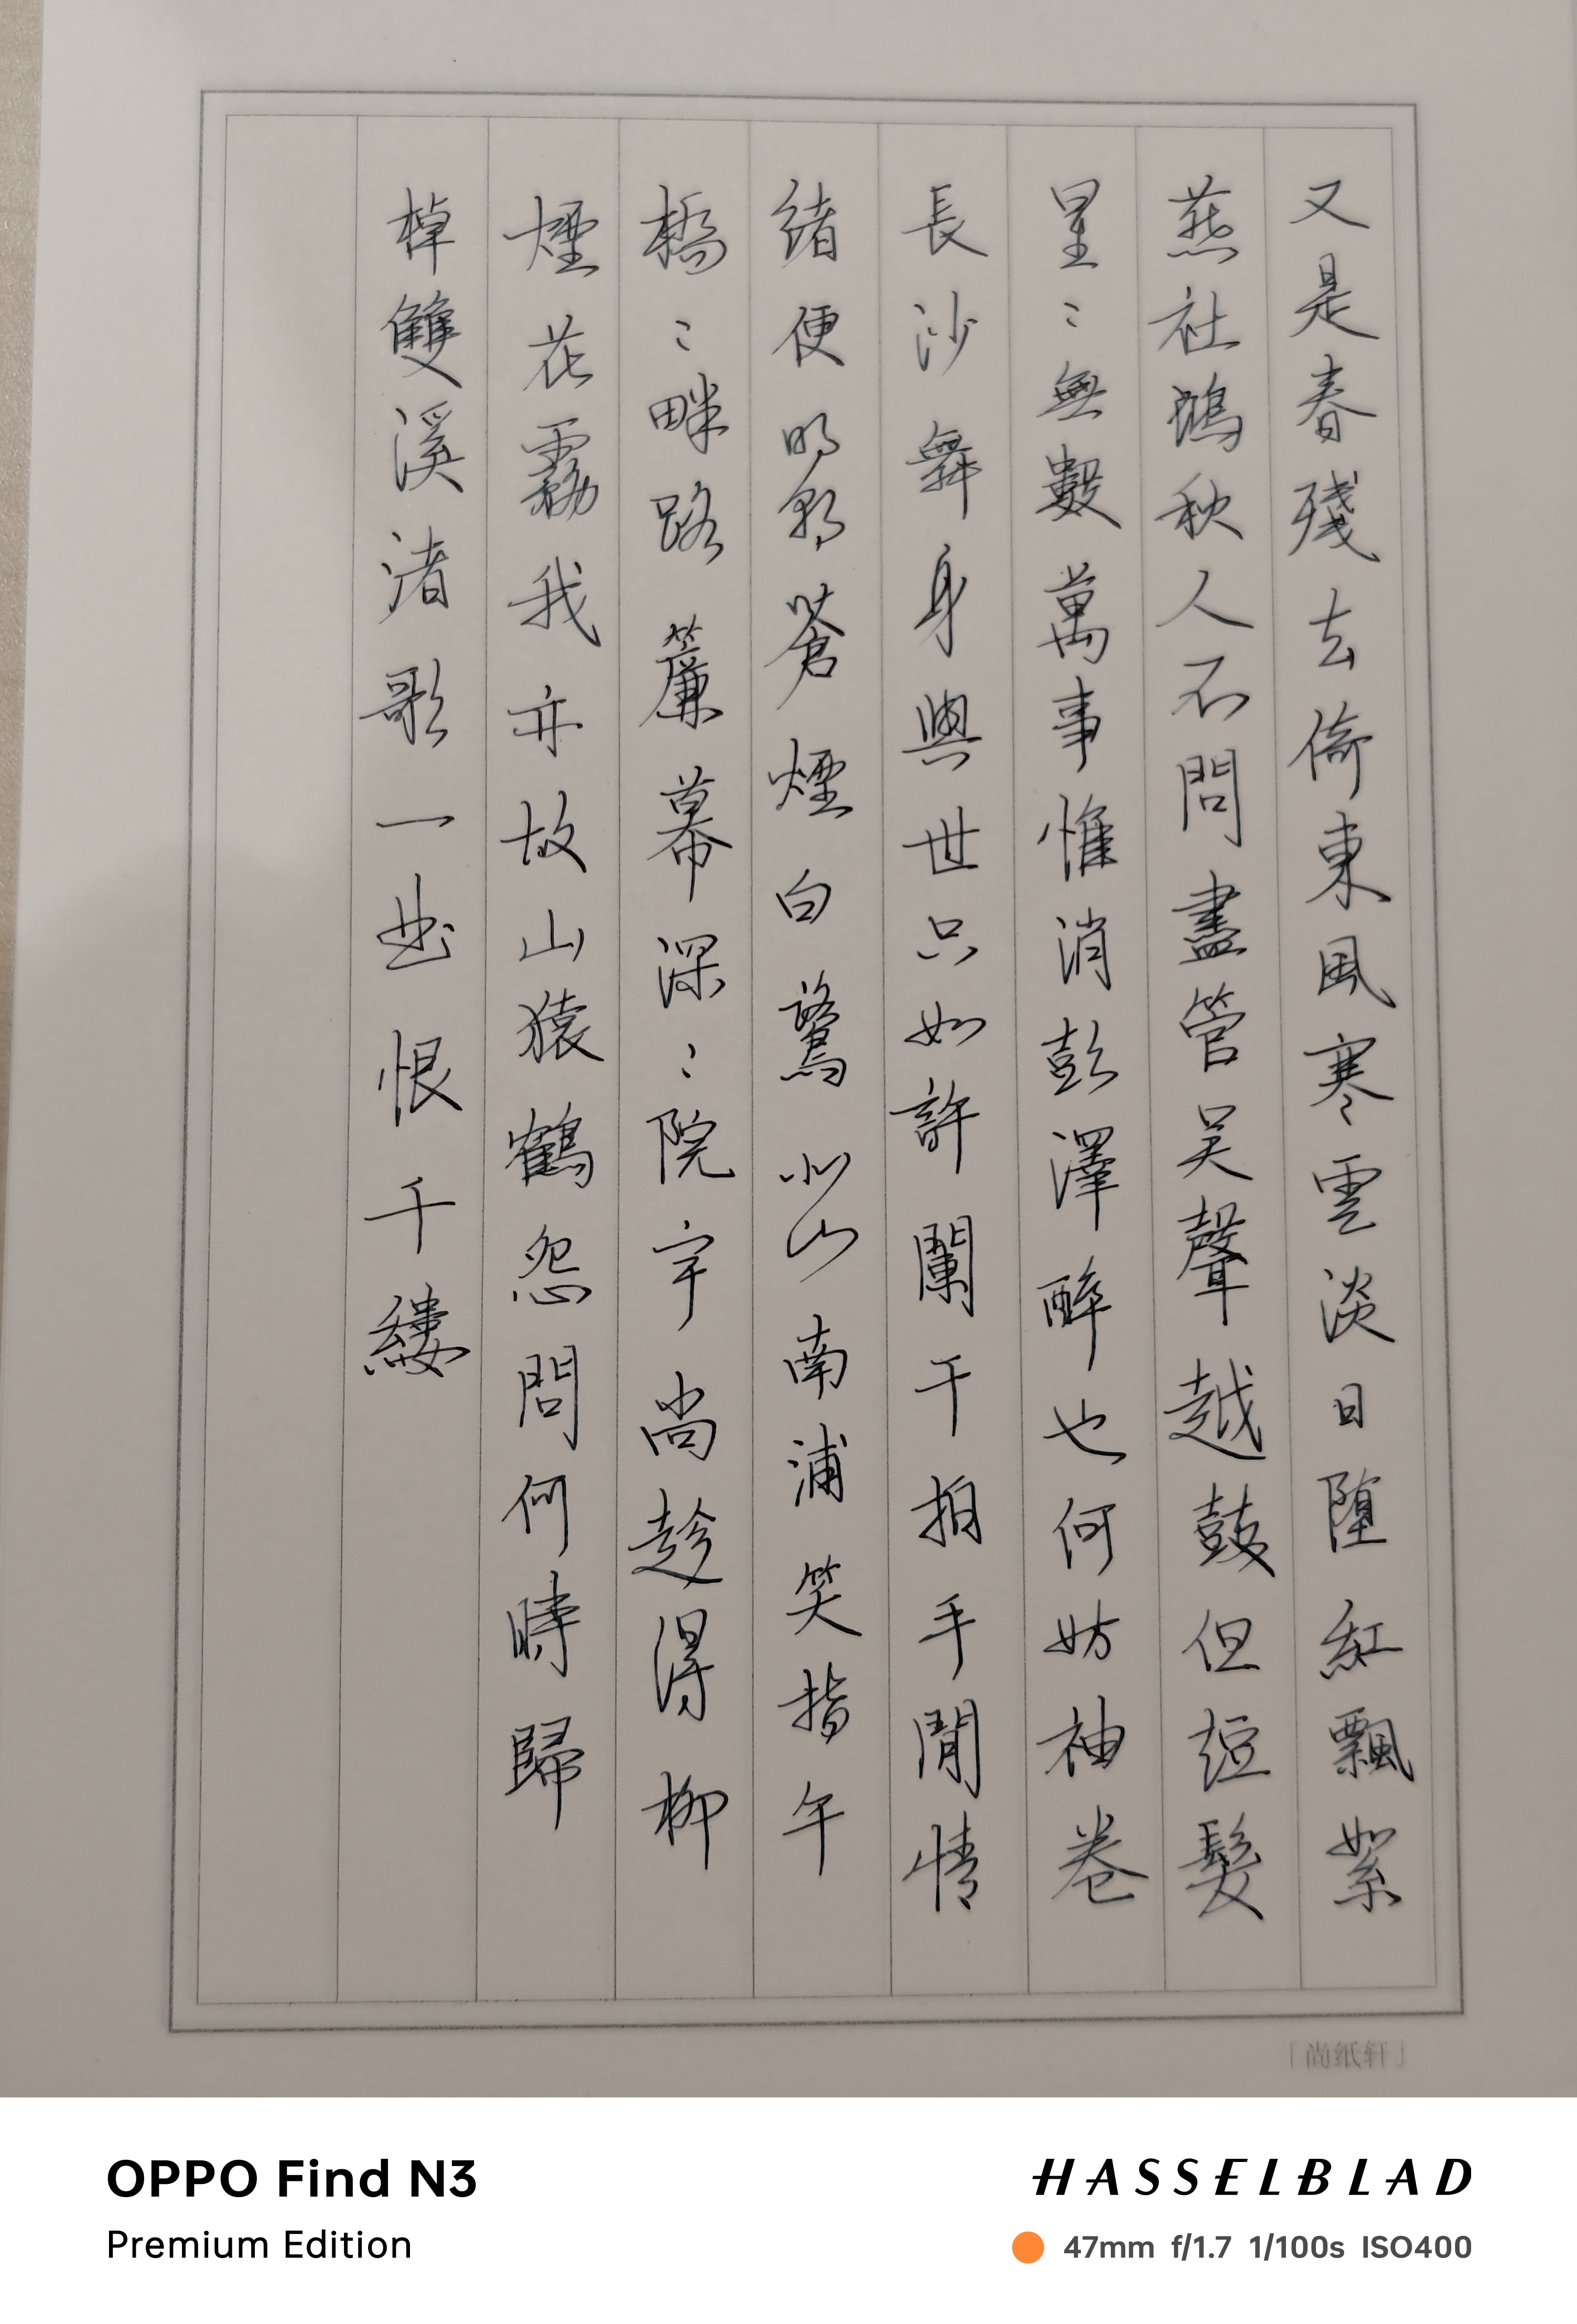 又是春殘去倚東風寒雲淡日墮紅飄絮
燕社鴻秋人不問盡管吴聲越鼓但短髮
星〻無數萬事惟消彭澤醉也何妨袖卷
長沙舞身與世只如許闌干拍手閒情
緒便明朝蒼煙白鷺北山南浦笑指午
橋〻畔路簾幕深〻院宇尚趁得柳
煙花霧我亦故山猿鶴怨問何時歸
棹雙溪渚歌一曲恨千縷
OPPO Find N3
Premium Edition
HASSELBLAD
47mm f/1.7 1/100s ISO400